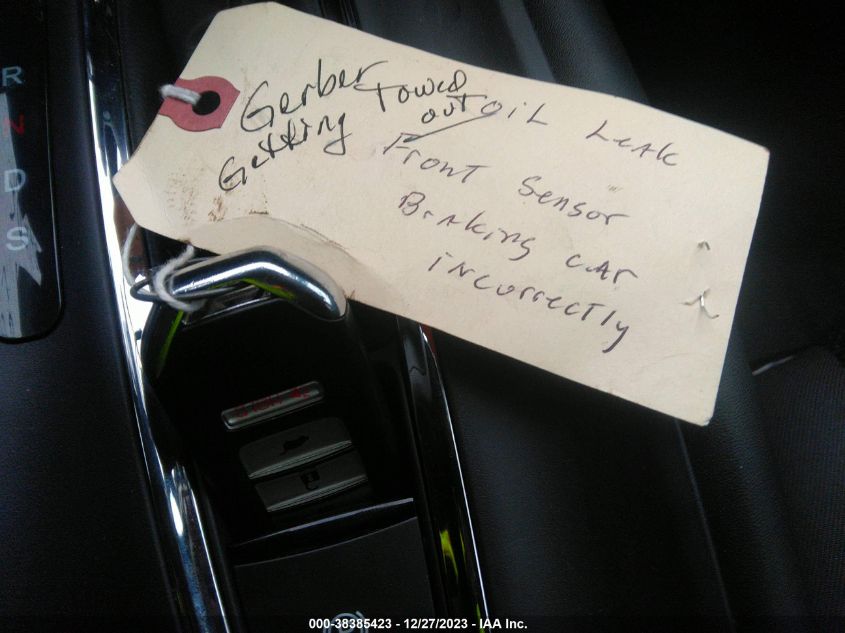 R
N
D
S
Gerber
Getting Towed
out
OIL Leak
Front Sensor
Braking car
incorrectly
000-38385423 - 12/27/2023 - IAA Inc.